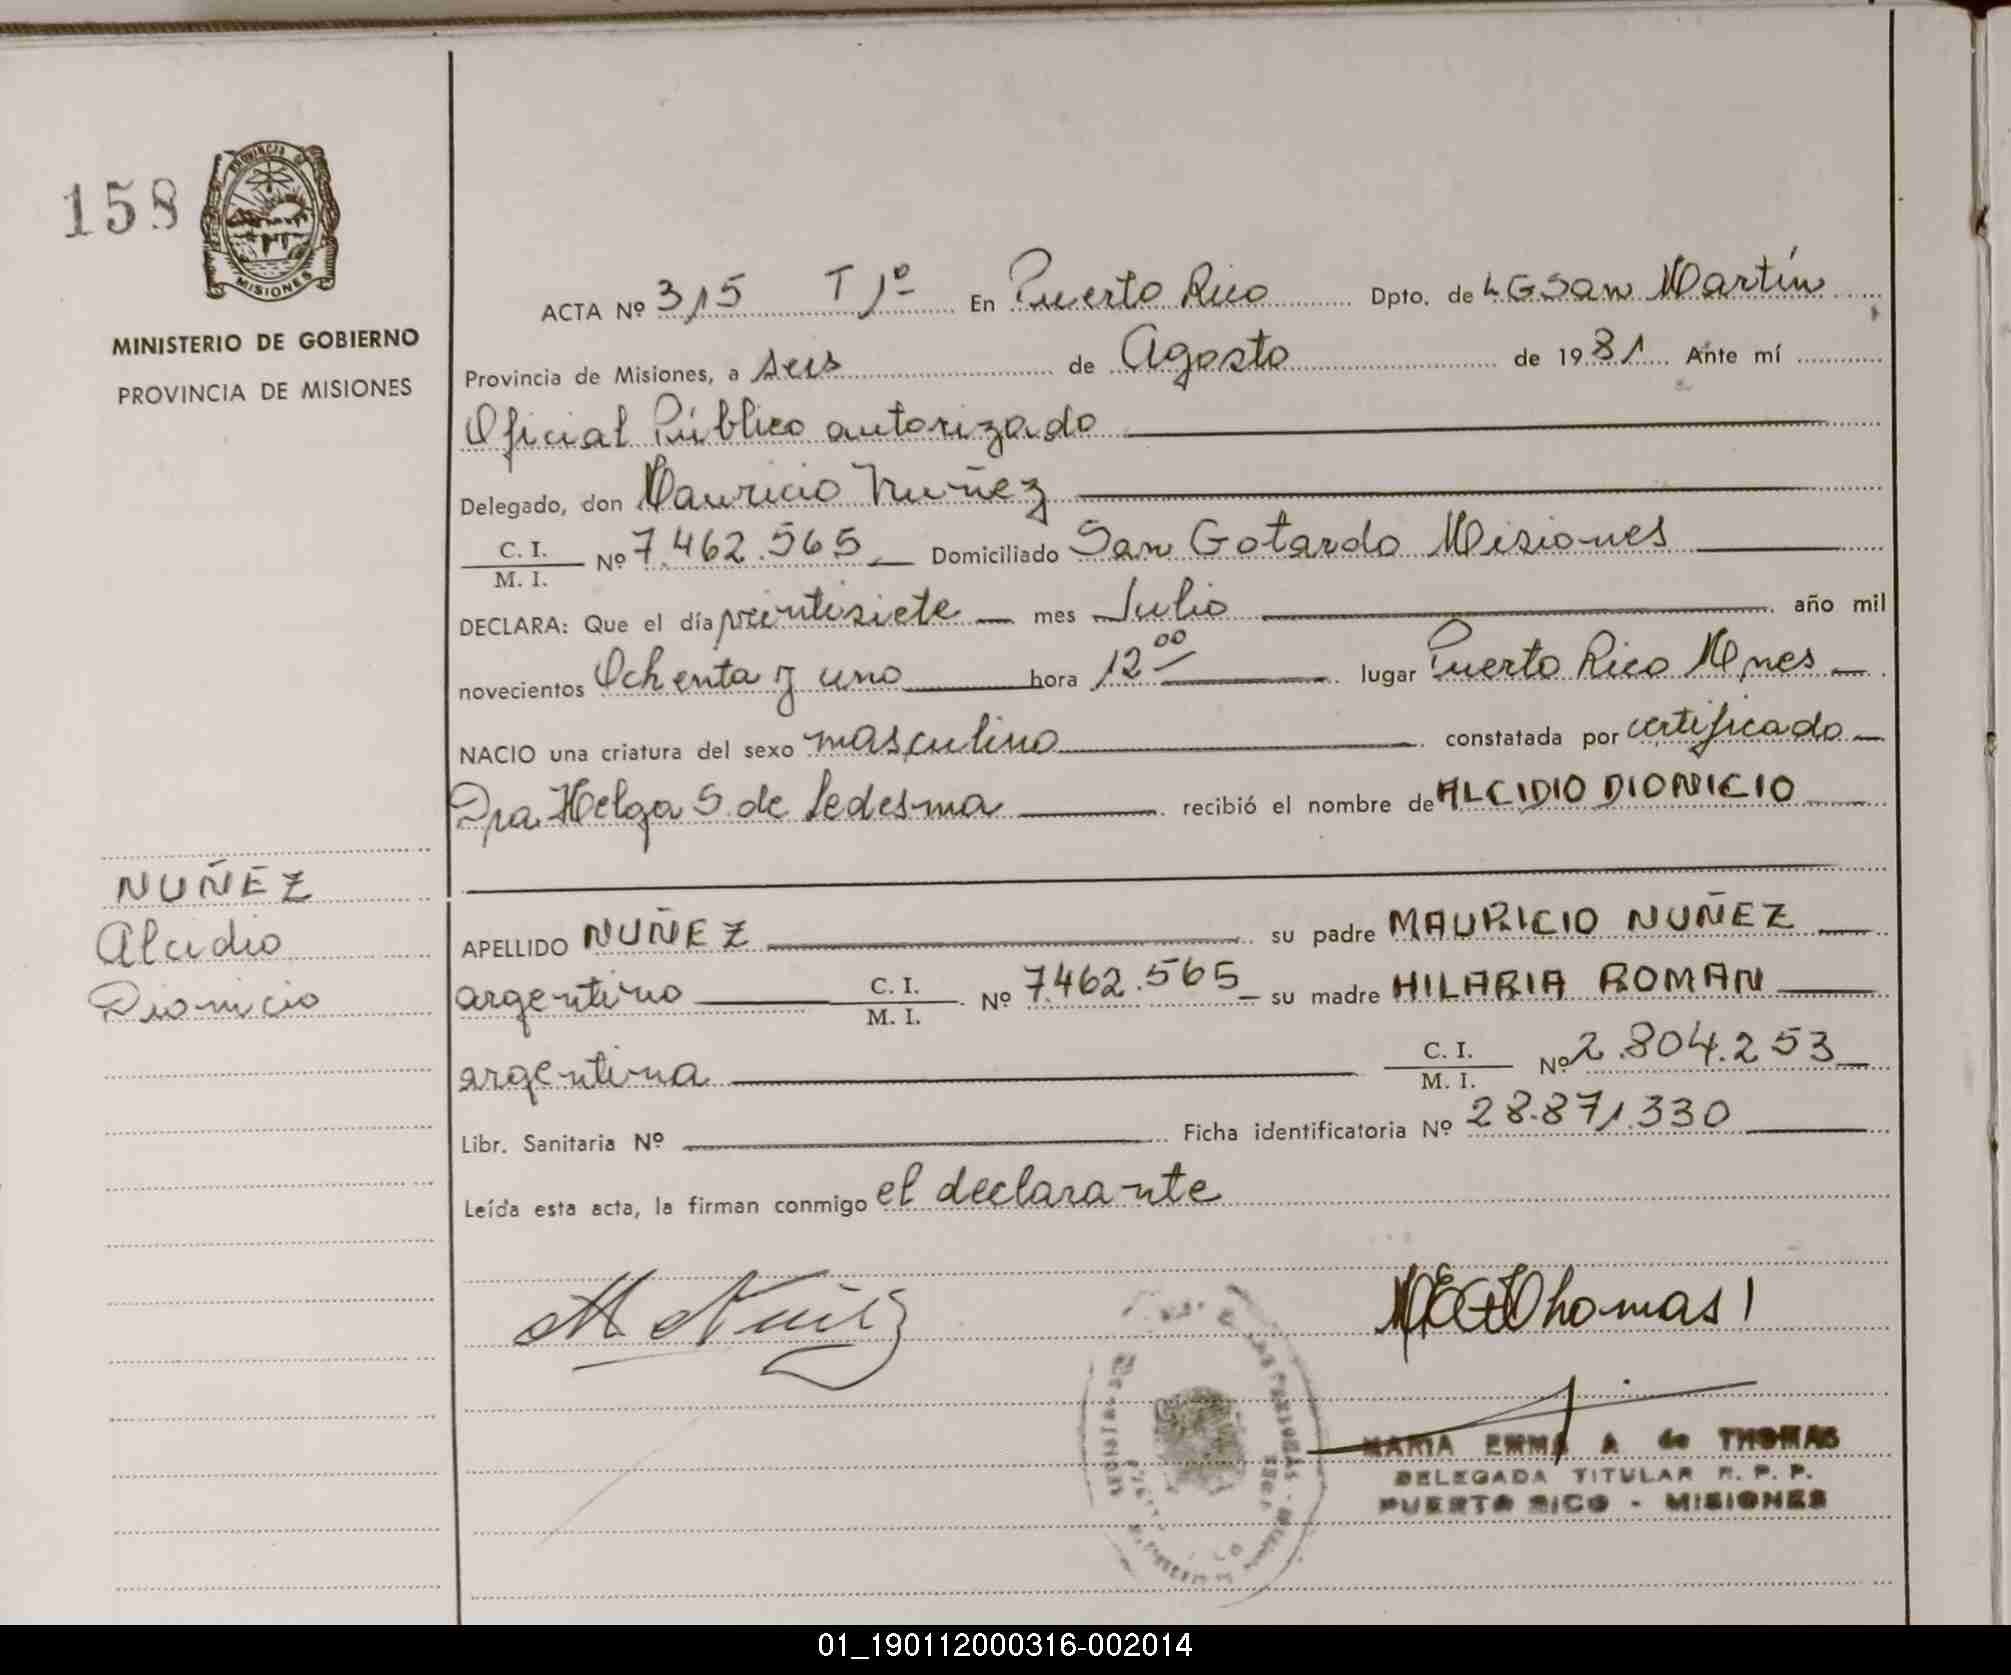 158
PROVINCIA DE
MISIONES
MINISTERIO DE GOBIERNO
PROVINCIA DE MISIONES
NUÑEZ
Alcidio
Dionicio
ACTA Nº 315 T 1º En Puerto Rico Dpto. de L G San Martín
Provincia de Misiones, a seis de Agosto de 1981 Ante mí
Oficial Público autorizado
Delegado, don Mauricio Nuñez
C. I.
M. I. Nº 7.462.565 Domiciliado San Gotardo Misiones
DECLARA: Que el día veintisiete mes Julio año mil
novecientos Ochenta y uno hora 12 00 lugar Puerto Rico Mnes
NACIO una criatura del sexo masculino constatada por certificado
Dra. Helga S. de Ledesma recibió el nombre de ALCIDIO DIONICIO
APELLIDO NUÑEZ su padre MAURICIO NUÑEZ
argentino C. I.
M. I. Nº 7.462.565 su madre HILARIA ROMAN
argentina C. I.
M. I. Nº 2.804.253
Libr. Sanitaria Nº Ficha identificatoria Nº 28.871.330
Leída esta acta, la firman conmigo el declarante
M Nuñez
MEA de Thomas
MARIA EMMA A de THOMAS
DELEGADA TITULAR R. P. P.
PUERTO RICO - MISIONES
01_190112000316-002014